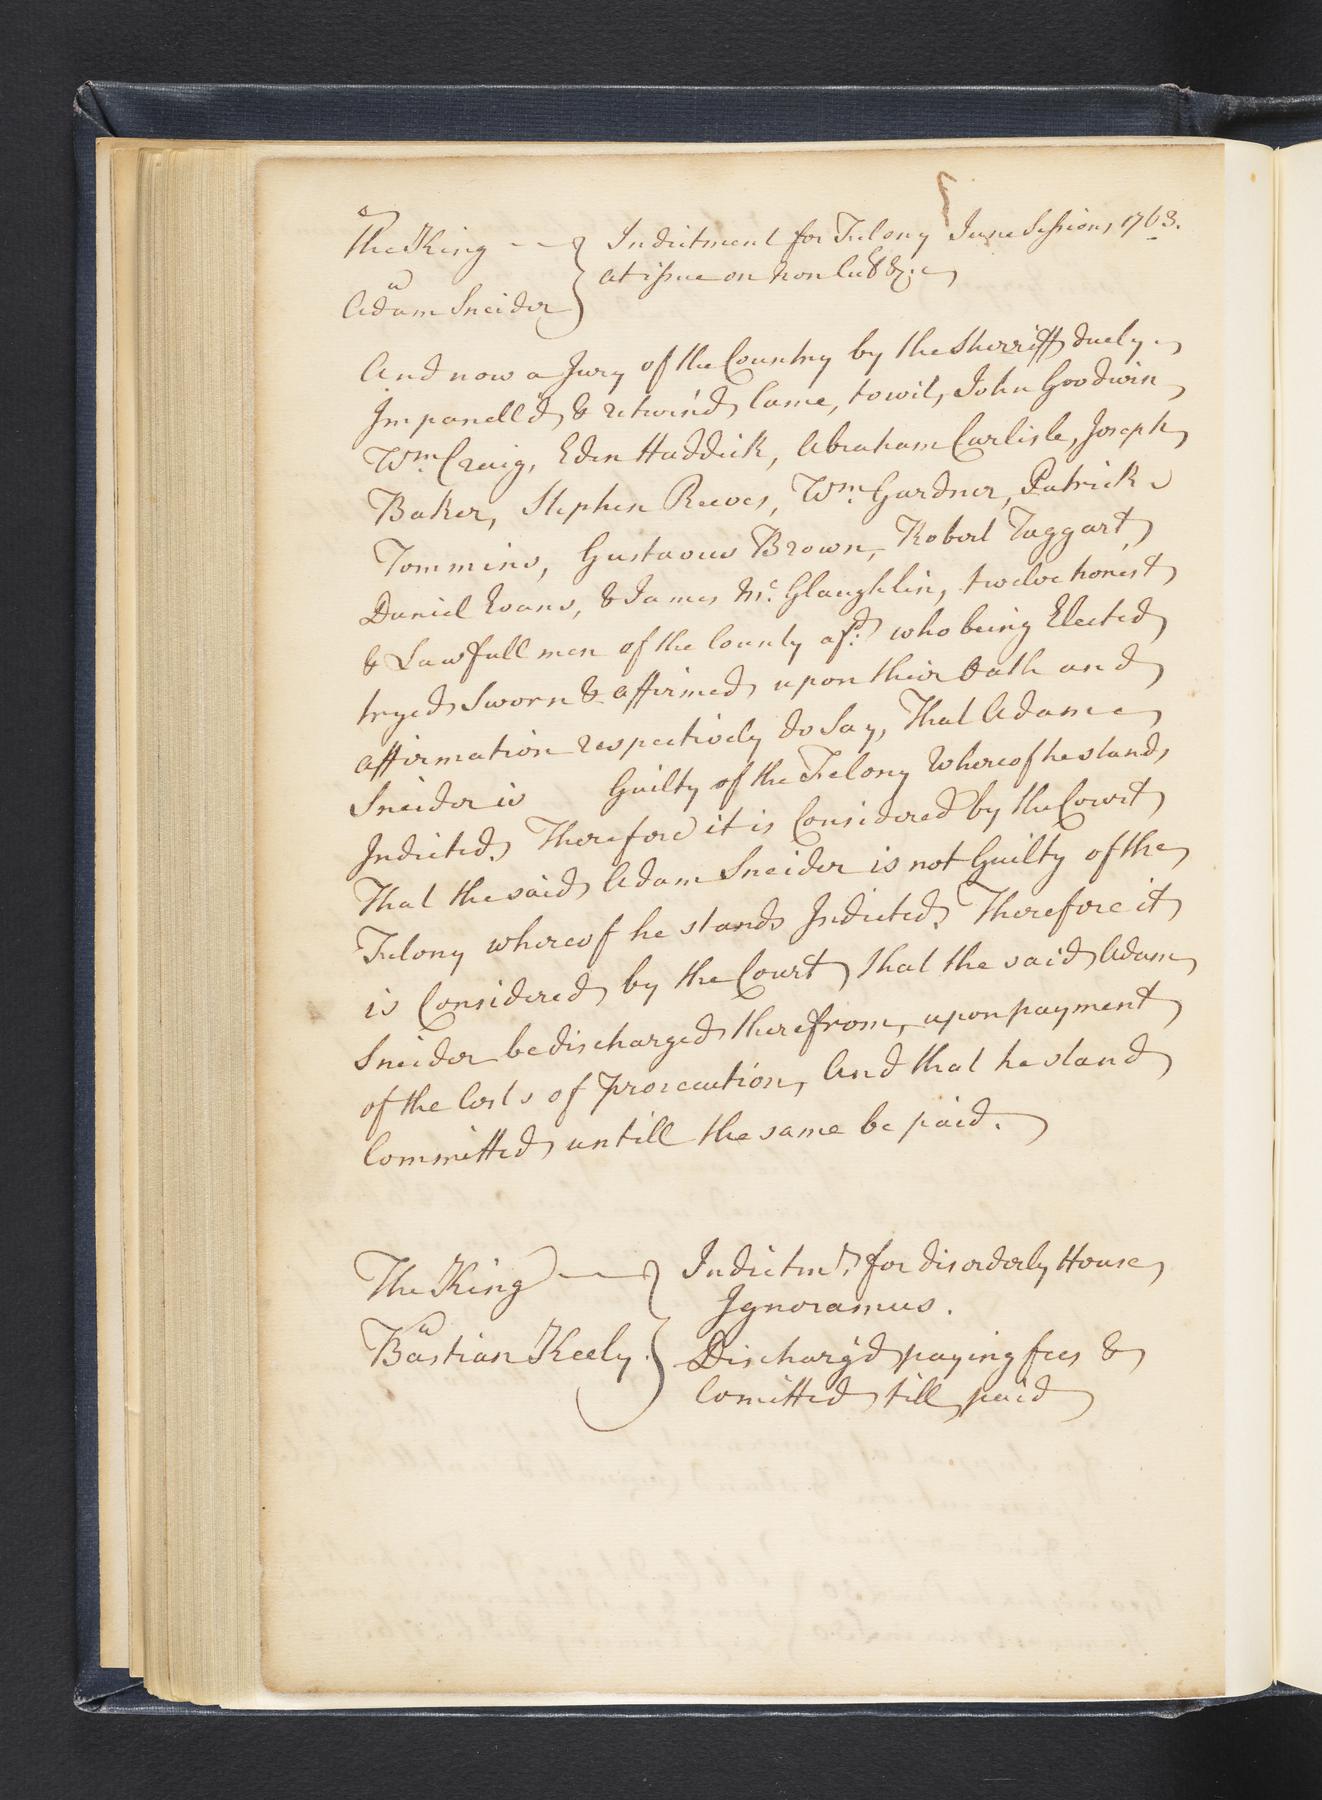 The King Indictment for Felony June Sessions 1763.
v at issue on non Cul &c.
Adam Sneider
And now a Jury of the Country by the Sherriff duely
Impanell'd & return'd Came, towit, John Goodwin
Wm. Craig, Eden Haddick, Abraham Carlisle, Joseph
Baker, Stephen Reeves, Wm. Gardner, Patrick
Tommins, Gustavus Brown, Robert Taggart,
Daniel Evans, & James Mc. Glaughlin, twelve honest
& Lawfull men of the County afd. who being Elected
tryed Sworn & affirmed upon their Oath and
affirmation respectively do Say, That Adam
Sneider is Guilty of the Felony Whereof he stands
Indicted. Therefore it is Considered by the Court
That the said Adam Sneider is not Guilty of the
Felony whereof he stands Indicted. Therefore it
is Considered by the Court that the said Adam
Sneider be discharged therefrom, upon payment
of the Costs of Prosecution, And that he stand
Committed untill the same be paid.
The King Indictmt. for disorderly House
Ignoramus.
v
Bastian Keely. Dischargd paying fees &
Comitted till paid